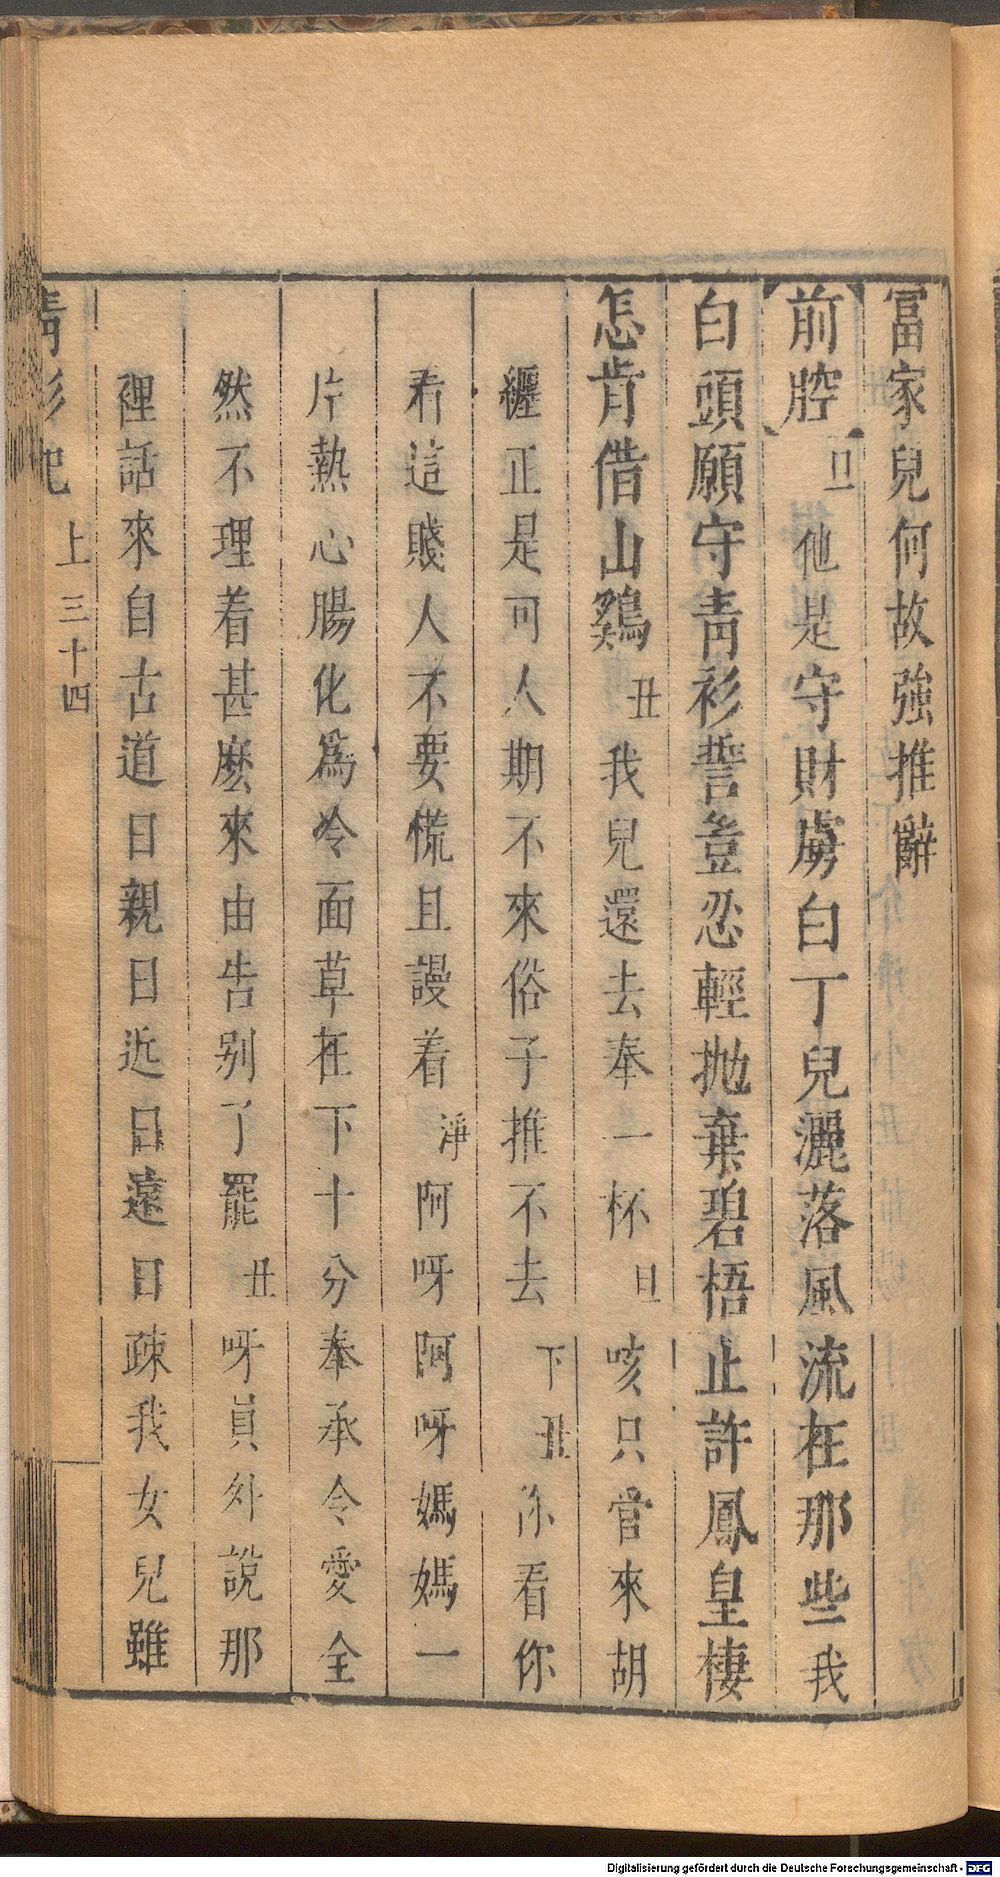 冨家兒何故強推辭
前腔 旦 他是守財虜白丁兒灑落風流在那些我
白頭願守青衫誓豈忍輕拋棄碧梧止許鳳皇棲
怎肯借山鷄 丑 我兒還去奉一杯 旦 咳只當來胡
纏正是可人期不來俗子推不去 下 丑 你看你
看這賤人不要慌且謾着 淨 阿呀阿呀媽媽一
片熱心腸化爲冷面草在下十分奉承令愛全
然不理着甚麽來由告别了罷 丑 呀員外說那
裡話來自古道日親日近日遠日疎我女兒雖
青衫記 上 三十四
Digitalisierung gefördert durch die Deutsche Forschungsgemeinschaft - DFG